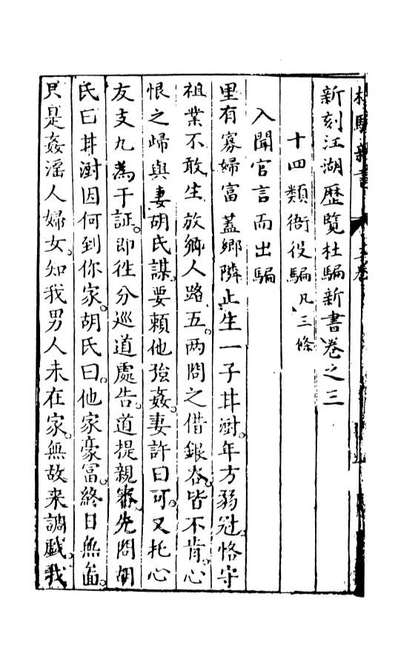 新刻江湖歷覽杜騙新書卷之三
十四類衙役騙凡三條
入聞官言而出騙
里有寡婦富蓋鄉隣止生一子井澍年方弱冠恪守
祖業不敢生放鄉人路五兩問之借銀谷皆不肯心
恨之歸與妻胡氏謀要賴他強姦妻許曰可又托心
友支九為干証即徃分巡道處告道提親審先問胡
氏曰井澍因何到你家胡氏曰他家豪富終日無
只是姦淫人婦女知我男人未在家無故来調戲我